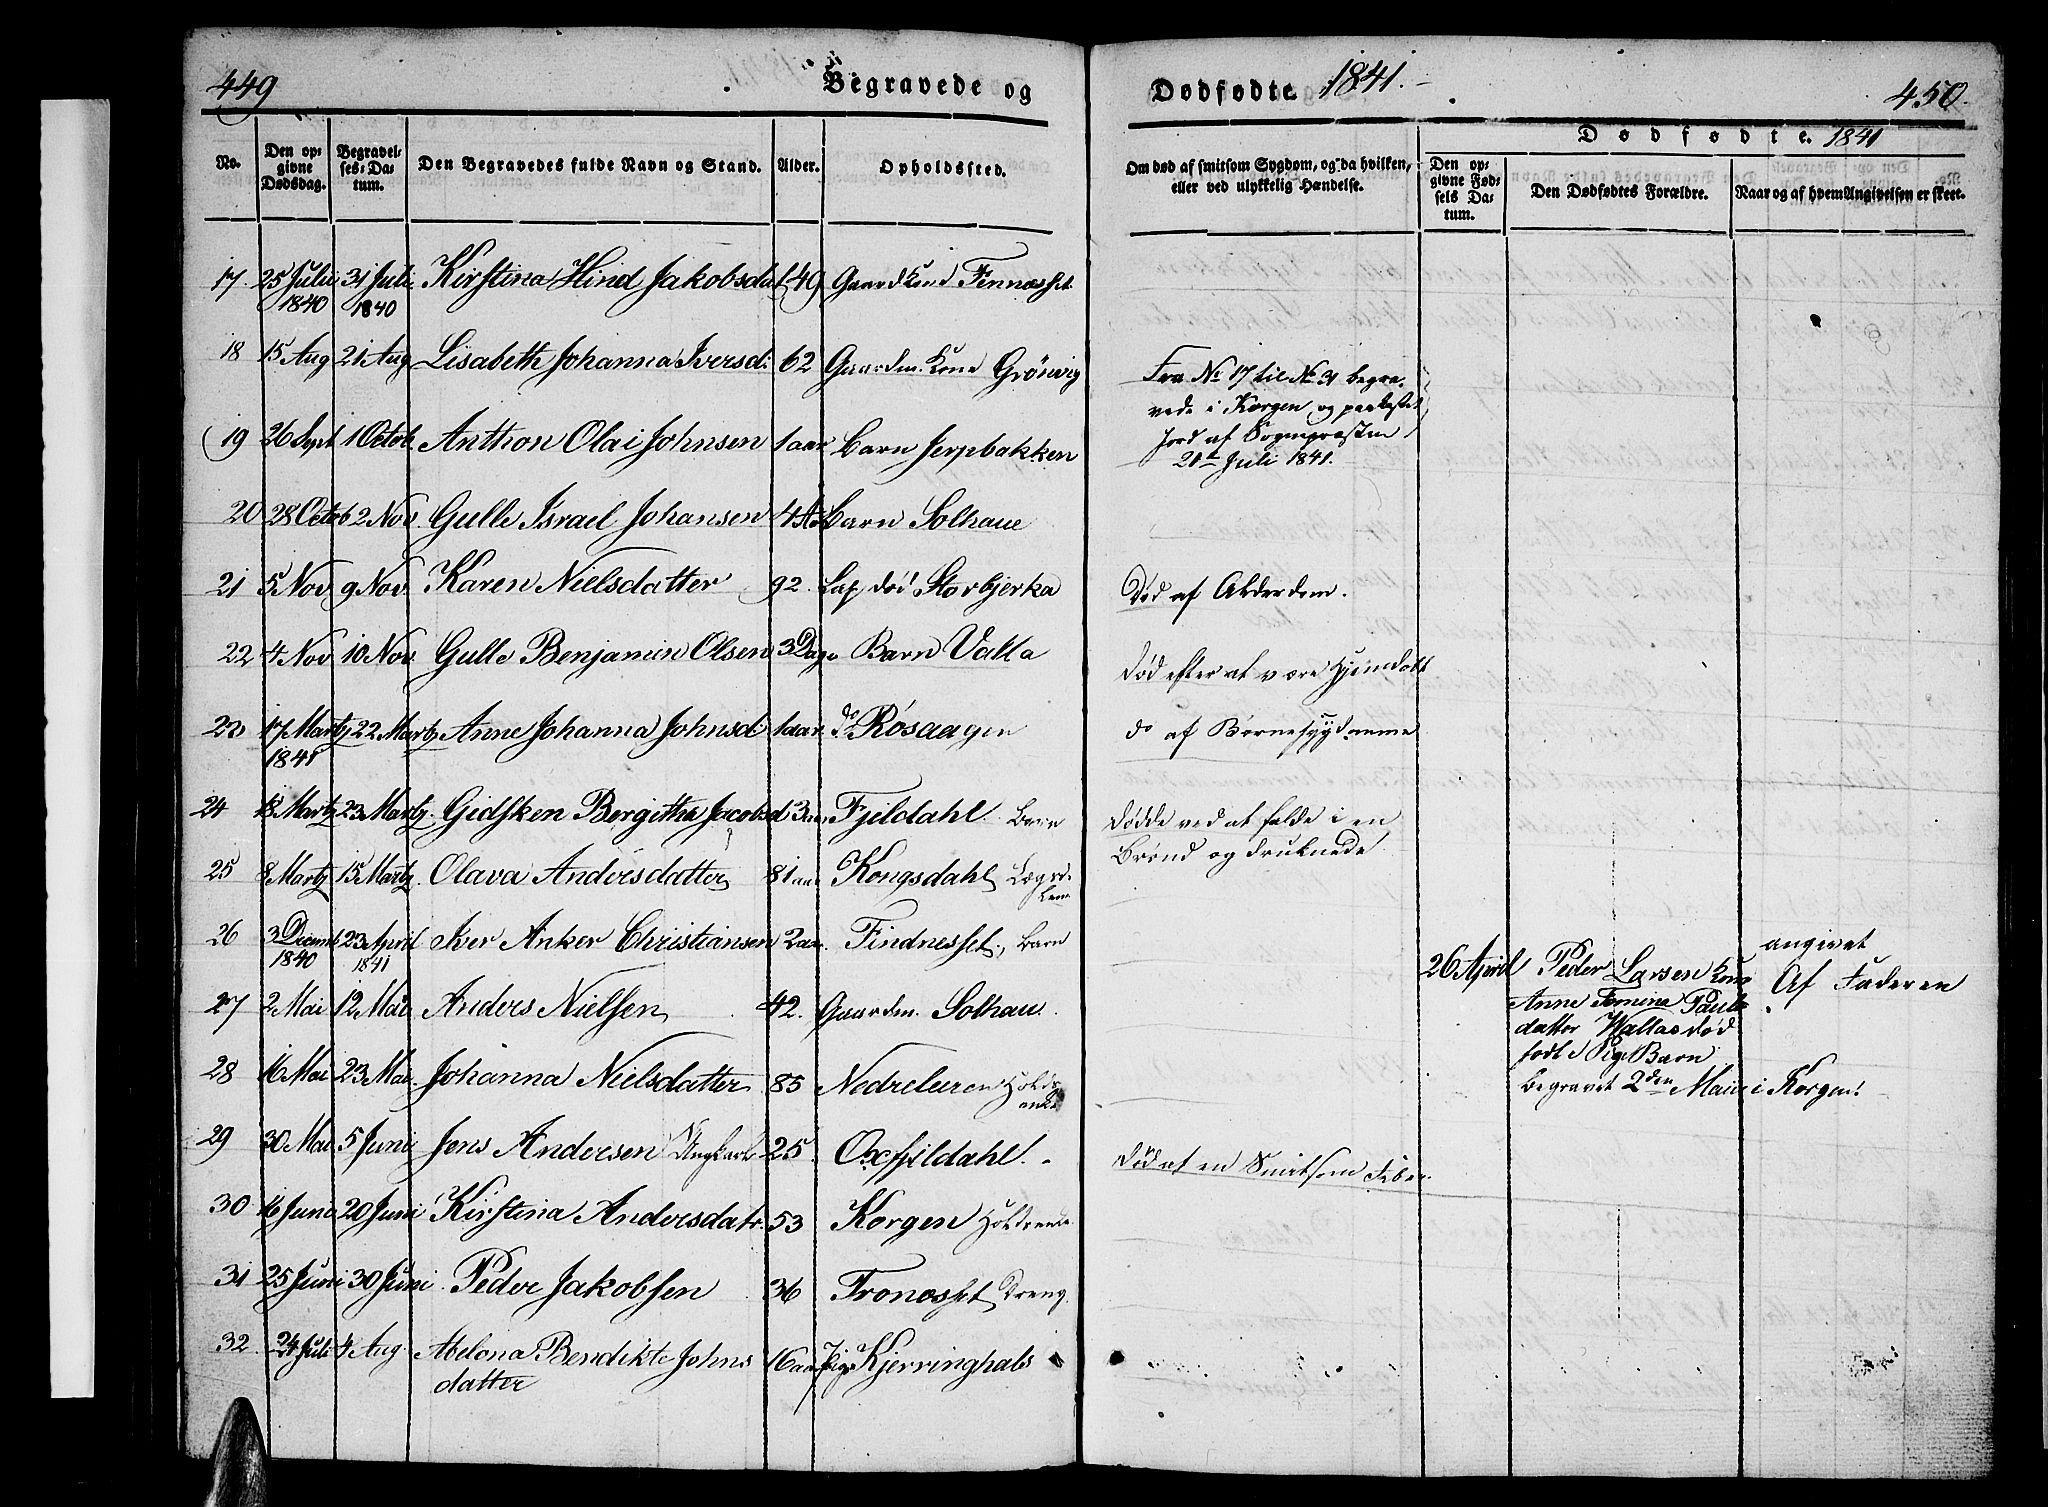 449
Begravede og
No.
Den op-
givne
Dødsdag.
Begravel-
ses-Da-
tum.
Den Begravedes fulde Navn og Stand.
Alder.
Opholdssted.
17. 25 Julii 31 Juli Kirstina Hind Jakobsdat 49 Gaardkone Fennæsset
1840 1840
18 15 Aug 21 Aug Lisabeth Johanna Iversd: 62 Gaardm. Kone Grönvig
19 26 Sept 1 Octob. Anthon Olai Johnsen 1 aar Barn Jerpbakken
20 28 Octob 2 Nov. Gulle Israel Johansen 4 Barn Solhaue
21 5 Nov 9 Nov. Karen Nielsdatter 92. Lap død Storbjerka
22 4 Nov 10 Nov. Gulle Benjamin Olsen 3 Dage Barn Valla
23 17 Martz 22 Martz Anne Johanna Johnsd: 1 aar. do Røsaagen
1841
24 18 Martz 23 Martz. Gidsken Bergitha Jacobsd 3 aar Fjeldahl. Barn
25 8 Martz 15 Martz. Olava Andersdatter 81 aar Kongsdahl Lægds
Lem
26 3 Decemb 23 April Iver Anker Christiansen 2 aar. Findnesset, Barn
1840 1841
27 2 Mai 12 Mai Anders Nielsen 42. Gaardm. Solhau.
28 16 Mai 23 Mai. Johanna Nielsdatter 85 Nedreleiren Holdr
enke
29 30 Mai 5 Juni Jens Andersen Ungkarl 25 Oxfjeldahl.
30 16 Juni 20 Juni Kirstina Andersdatr. 53 Korgen Holdrende
31 25 Juni 30 Juni Peder Jakobsen 36 Fronæsset Dreng.
32. 24 Juli 4 Aug. Abelona Bendikte Johns 16 aar Pige Kjerringhals
datter
Dødfødte. 1841.
450.
Dødfødte. 1841
Om død af smitsom Sygdom, og da hvilken,
eller ved ulykkelig Hændelse.
Den op-
givne Fød-
sels Da-
tum.
Den Dødfødtes Forældre.
Naar og af hvem Angivelsen er skeet.
Fra No 17 til No 31 begra-
vede i Korgen og paakastet
Jord af Sognepræsten
21de Juli 1841.
Død af Alderdom.
død efter at være Hjemdøbt
do af Børnesygdomme
døde ved at falde i en
Brønd og druknede
død af en Smitsom Feber.
26 April Peder Larsen Kone
Anne Pauls
datter Vallas død
født Pige Barn
begravet 2den Mai i Korgen!
angivet
Af Faderen